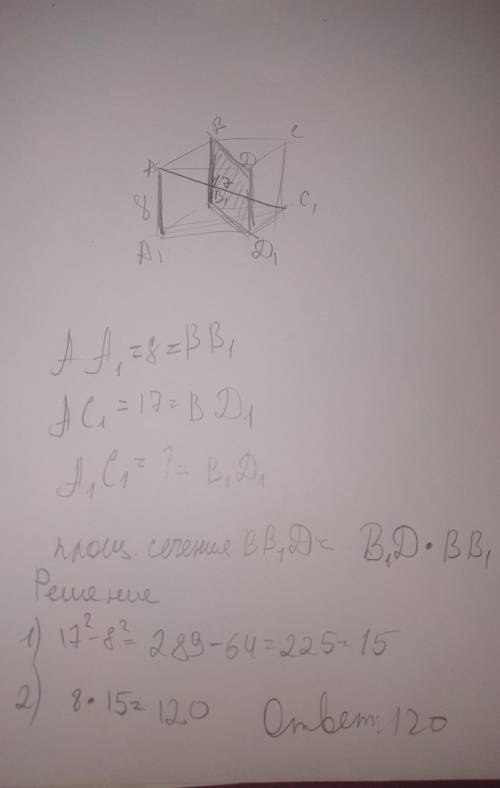 B C
A D
17
8 B₁ C₁
A₁ D₁
AA₁ = 8 = BB₁
AC₁ = 17 = BD₁
A₁C₁ = ? = B₁D₁
площ. сечения BB₁D = B₁D • BB₁
Решение
1) 17² - 8² = 289 - 64 = 225 = 15
2) 8 • 15 = 120 Ответ: 120